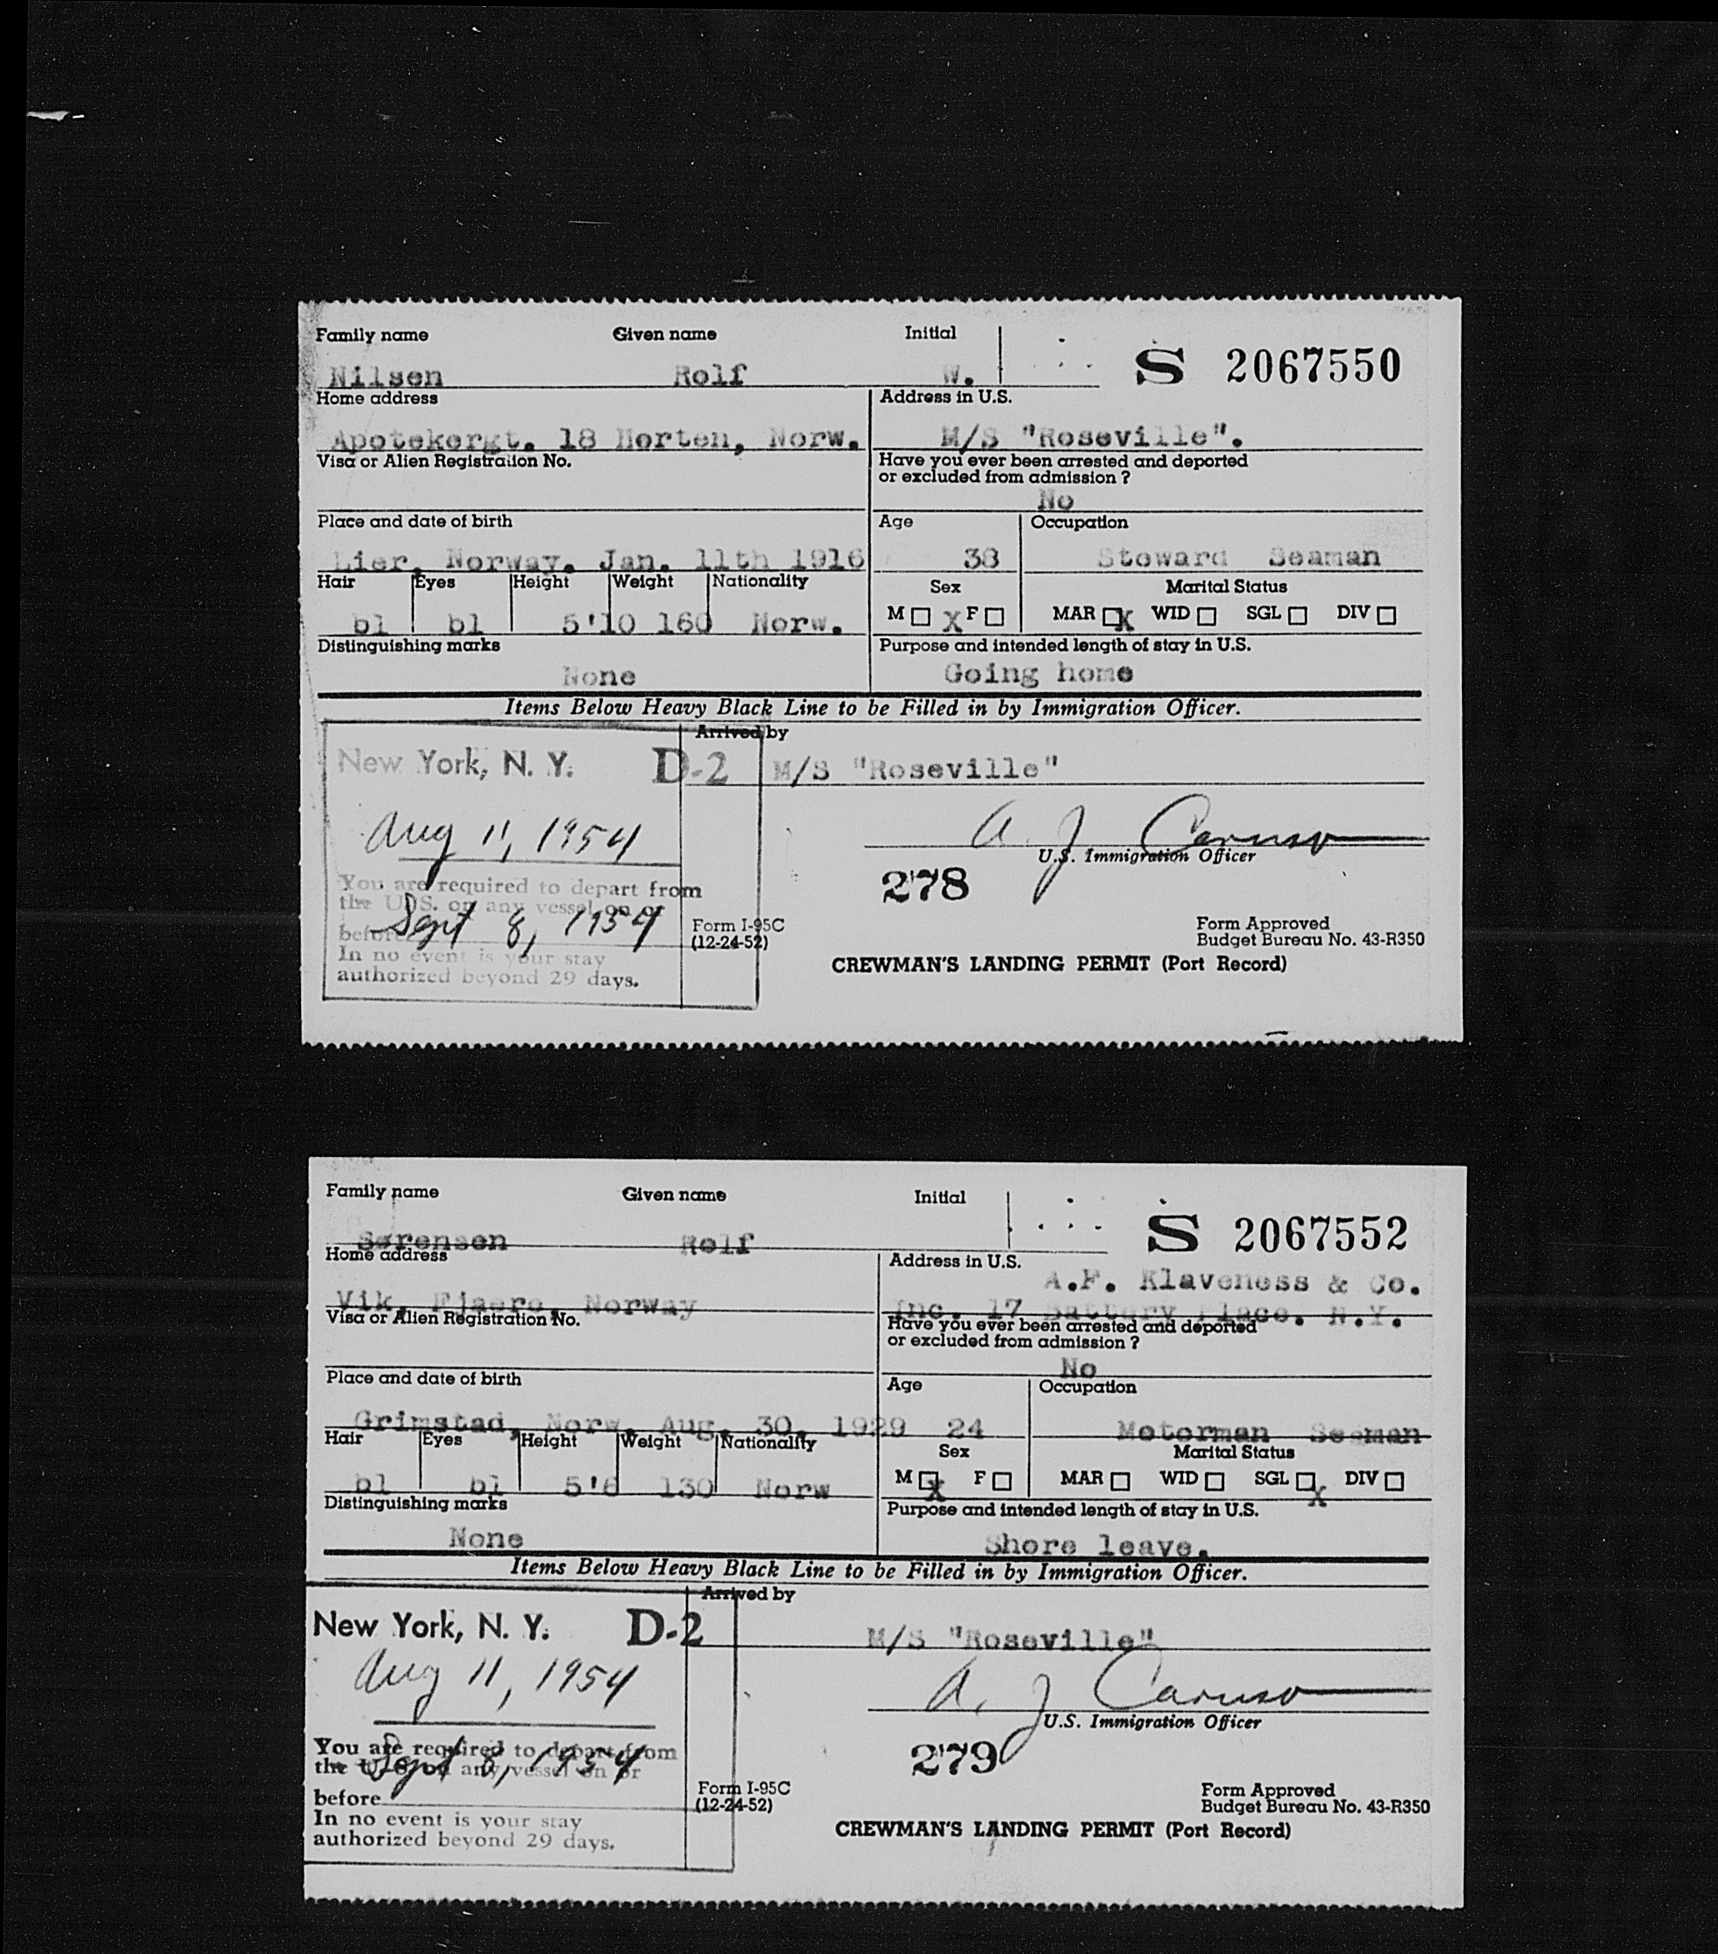 Family name Given name Initial
Nilsen Rolf W. S 2067550
Home address Address in U.S.
Apotekergt. 18 Horten, Norw. M/S "Roseville".
Visa or Alien Registration No. Have you ever been arrested and deported
or excluded from admission ?
No
Place and date of birth Age Occupation
Lier, Norway. Jan. 11th 1916 38 Steward Seaman
Hair Eyes Height Weight Nationality Sex Marital Status
bl bl 5'10 160 Norw. M X F MAR X WID SGL DIV
Distinguishing marks Purpose and intended length of stay in U.S.
None Going home
Items Below Heavy Black Line to be Filled in by Immigration Officer.
Arrived by
New York, N. Y. D-2 M/S "Roseville"
Aug 11, 1954 A. J. Caruso
U.S. Immigration Officer
You are required to depart from 278
the U.S. on any vessel on or
before Sept 8, 1954 Form I-95C Form Approved
(12-24-52) Budget Bureau No. 43-R350
In no event is your stay
authorized beyond 29 days. CREWMAN'S LANDING PERMIT (Port Record)
Family name Given name Initial
Sørensen Rolf S 2067552
Home address Address in U.S.
A.F. Klaveness & Co.
Vik, Fjaere, Norway Inc. 17 Battery Place. N.Y.
Visa or Alien Registration No. Have you ever been arrested and deported
or excluded from admission ?
No
Place and date of birth Age Occupation
Grimstad, Norw. Aug. 30, 1929 24 Motorman Seaman
Hair Eyes Height Weight Nationality Sex Marital Status
bl bl 5'6 130 Norw M X F MAR WID SGL X DIV
Distinguishing marks Purpose and intended length of stay in U.S.
None Shore leave.
Items Below Heavy Black Line to be Filled in by Immigration Officer.
Arrived by
New York, N. Y. D-2 M/S "Roseville"
Aug 11, 1954 A. J. Caruso
U.S. Immigration Officer
You are required to depart from 279
the U.S. on any vessel on or
Sept 8, 1954
before Form I-95C Form Approved
(12-24-52) Budget Bureau No. 43-R350
In no event is your stay
authorized beyond 29 days. CREWMAN'S LANDING PERMIT (Port Record)